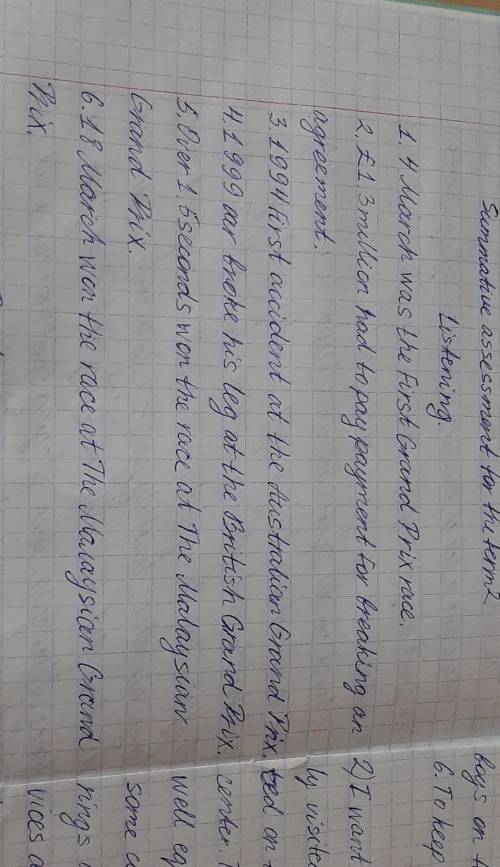 Summative assessment for the term 2
Listening.
1. 4 March was the First Grand Prix race.
2. £1.3 million had to pay payment for breaking an
agreement.
3. 1994 first accident at the Australian Grand Prix.
4. 1999 car broke his leg at the British Grand Prix.
5. Over 1.5 seconds won the race at The Malaysian
Grand Prix.
6. 18 March won the race at The Malaysian Grand
Prix.
boys on
6. To keep
2) I want
by visite
on
center.
well eq
some
rings
vices a